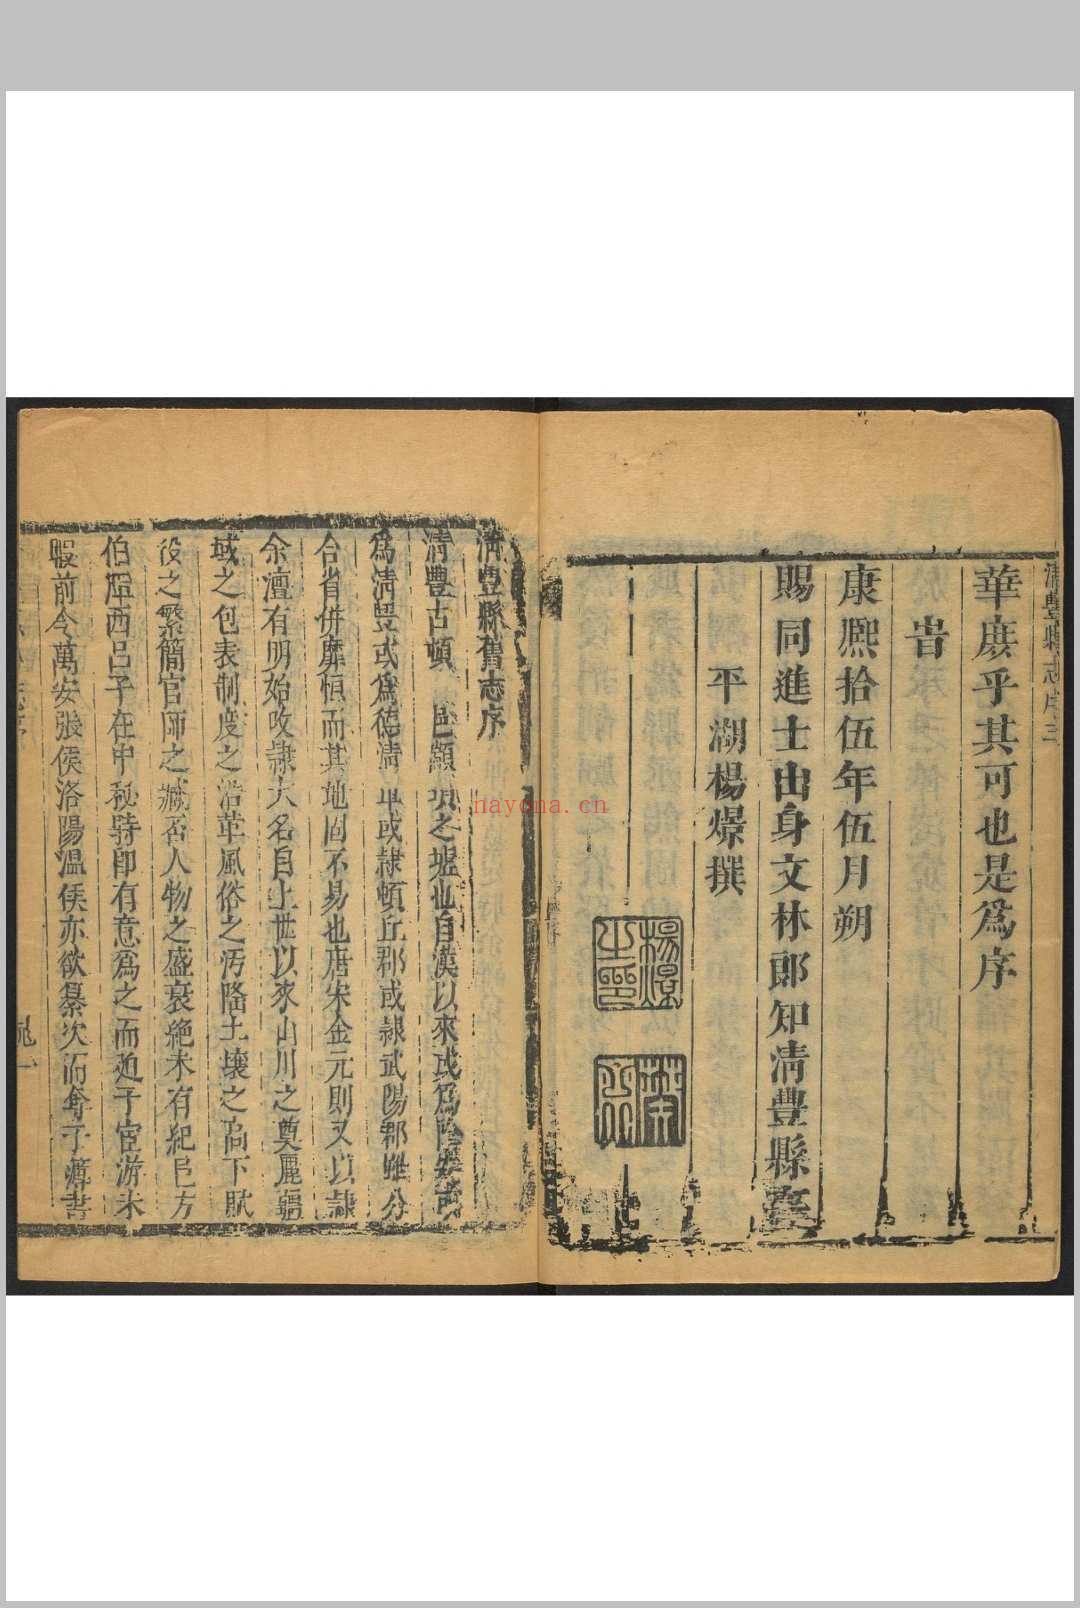 清豐縣志序三
華庶乎其可也是爲序
旹
康熙拾伍年伍月朔
賜同進士出身文林郎知清豐縣事
平湖楊燝撰
楊燝之印
清豐縣舊志序
清豐古頓邑顓頊之墟也自漢以來或爲
爲清豐或爲德清軍或隷頓丘郡或隷武陽郡雖分
合省併靡恒而其地固不易也唐宋金元則又以隷
余澶有明始改隷大名自上世以來山川之奠麗疆
域之包表制度之沿革風俗之汚隆土壤之高下賦
役之繁簡官師之臧否人物之盛衰絶未有紀邑方
伯厓西呂子在中秘時即有意爲之而迫于宦游未
暇前令萬安張侯洛陽溫侯亦欲纂次而奪于簿書
nayona.cn